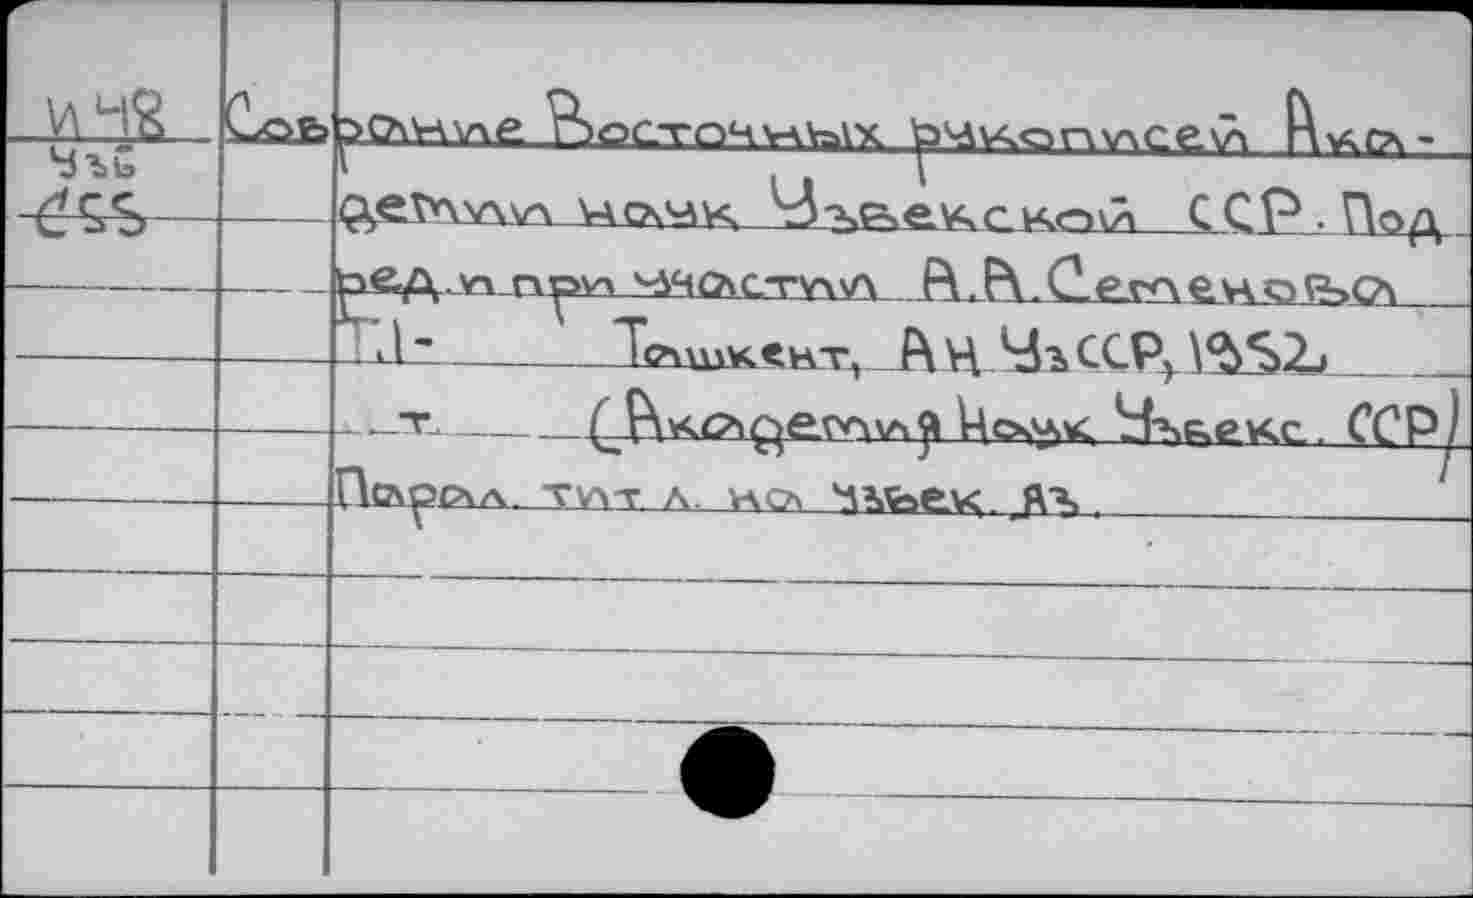 И 48 Собрание Восточных рукописей Ака-
Узб
С55 демии наук Узбекской ССР. Под
ред. и при участии А.А. Семенова
Т.1- Ташкент, АН УзССР, 1952,
т. (Академия Наук Узбекс. ССР)
Парал. тит л. на Узбек. яз.